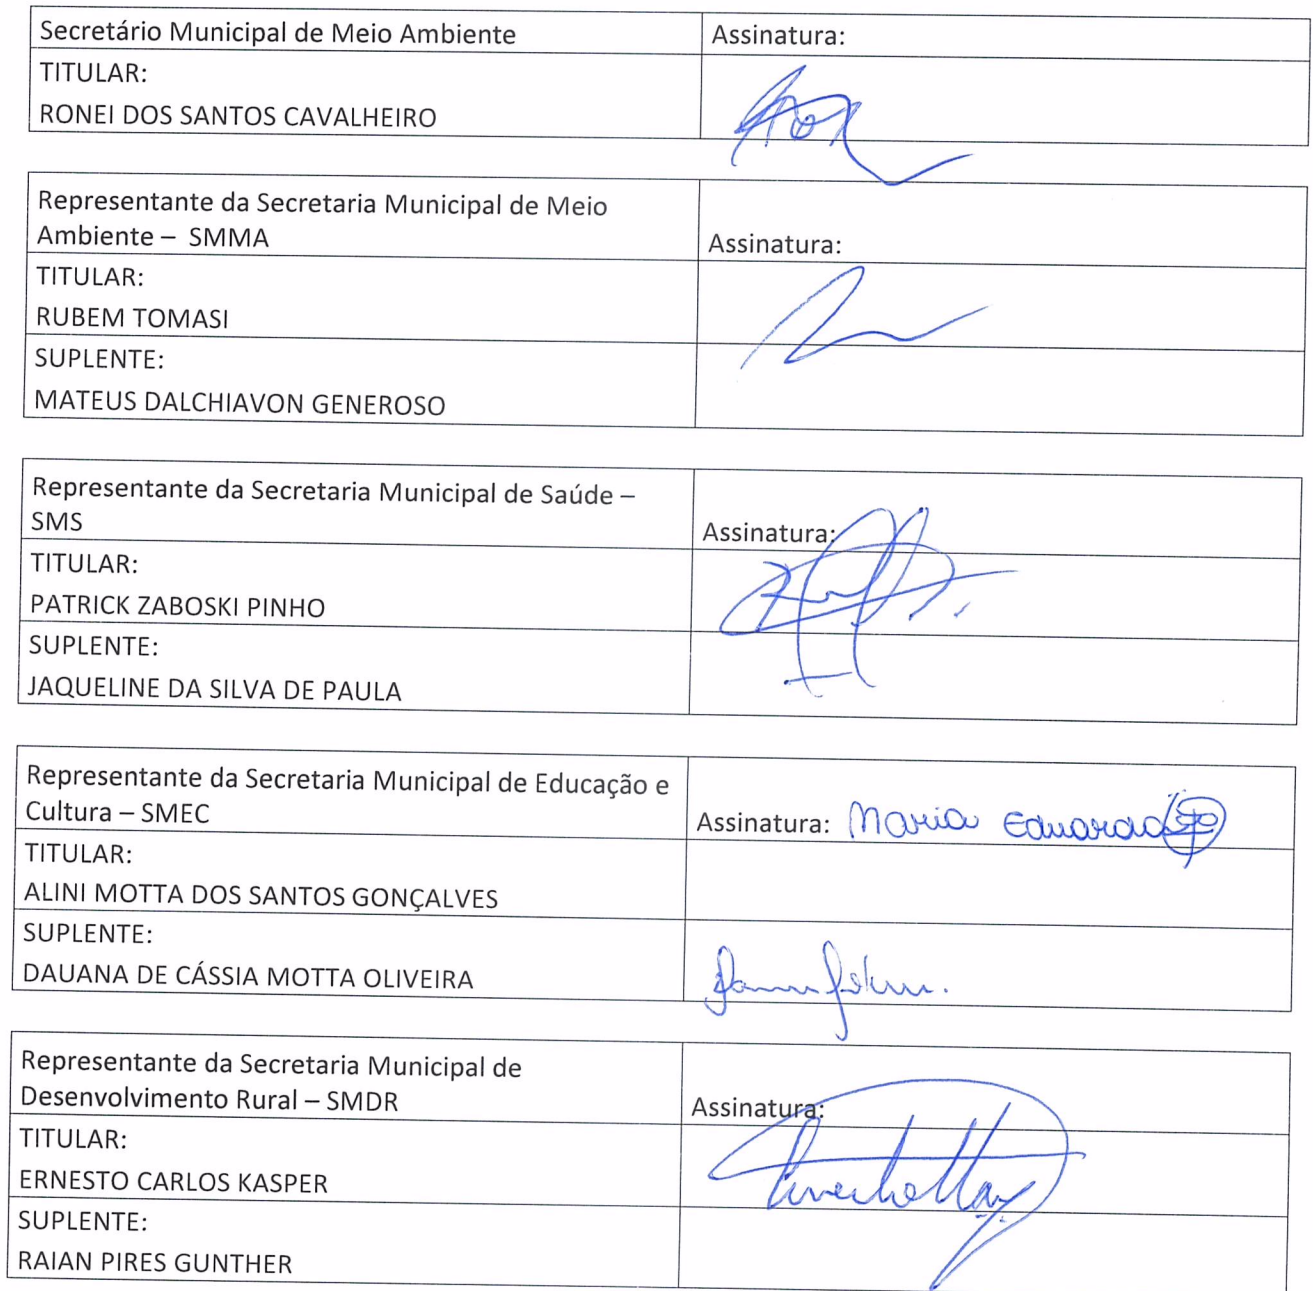 Secretário Municipal de Meio Ambiente Assinatura:
TITULAR:
RONEI DOS SANTOS CAVALHEIRO
Representante da Secretaria Municipal de Meio
Ambiente – SMMA Assinatura:
TITULAR:
RUBEM TOMASI
SUPLENTE:
MATEUS DALCHIAVON GENEROSO
Representante da Secretaria Municipal de Saúde –
SMS Assinatura:
TITULAR:
PATRICK ZABOSKI PINHO
SUPLENTE:
JAQUELINE DA SILVA DE PAULA
Representante da Secretaria Municipal de Educação e
Cultura – SMEC Assinatura: Maria Eduarda
TITULAR:
ALINI MOTTA DOS SANTOS GONÇALVES
SUPLENTE:
DAUANA DE CÁSSIA MOTTA OLIVEIRA
Representante da Secretaria Municipal de
Desenvolvimento Rural – SMDR Assinatura:
TITULAR:
ERNESTO CARLOS KASPER
SUPLENTE:
RAIAN PIRES GUNTHER